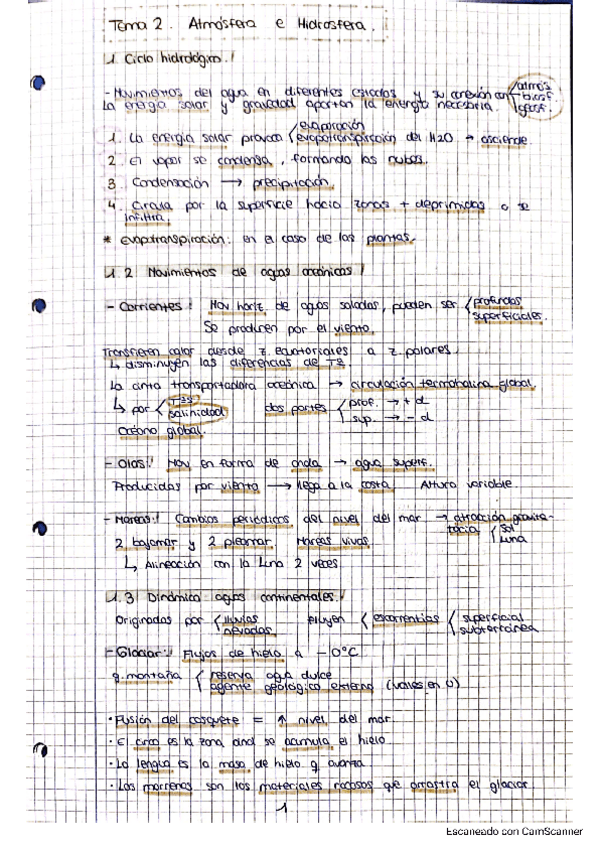 Tema 2. Atmósfera e Hidrosfera.
1 Ciclo hidrológico.
- Movimientos del agua en diferentes estados y su conexión con atmós. biosf. geosf.
La energía solar y gravedad aportan la energía necesaria.
1. La energía solar provoca evaporación evapotranspiración del H2O → asciende.
2 El vapor se condensa, formando las nubes.
3 Condensación → precipitación.
4. Circula por la superficie hacia zonas + deprimidas o se infiltra.
* evapotranspiración: en el caso de las plantas.
1.2 Movimientos de aguas oceánicas
- Corrientes: Mov horiz. de aguas saladas, pueden ser profundas superficiales.
Se producen por el viento.
Transfieren calor desde z. ecuatoriales a z. polares.
↳ disminuyen las diferencias de Tª.
La cinta transportadora oceánica → circulación termohalina global
↳ por Tªs salinidad dos partes prof. → + d sup. → - d
Océano global.
- Olas: Mov en forma de onda → agua superf.
Producidas por viento → llega a la costa Altura variable
- Mareas: Cambios periódicos del nivel del mar → atracción gravita-
toria Sol Luna
2 bajamar y 2 pleamar. Mareas vivas
↳ Alineación con la Luna 2 veces
1.3 Dinámica aguas continentales.
Originadas por lluvias nevadas. fluyen escorrentías superficial subterránea
- Glaciar: Flujos de hielo a -0°C
g. montaña reserva agua dulce agente geológico externo (valles en U)
· Fusión del casquete = ↑ nivel del mar
· El circo es la zona dnd se acumula el hielo
· La lengua es la masa de hielo q avanza
· Las morrenas son los materiales rocosos que arrastra el glaciar.
1
Escaneado con CamScanner